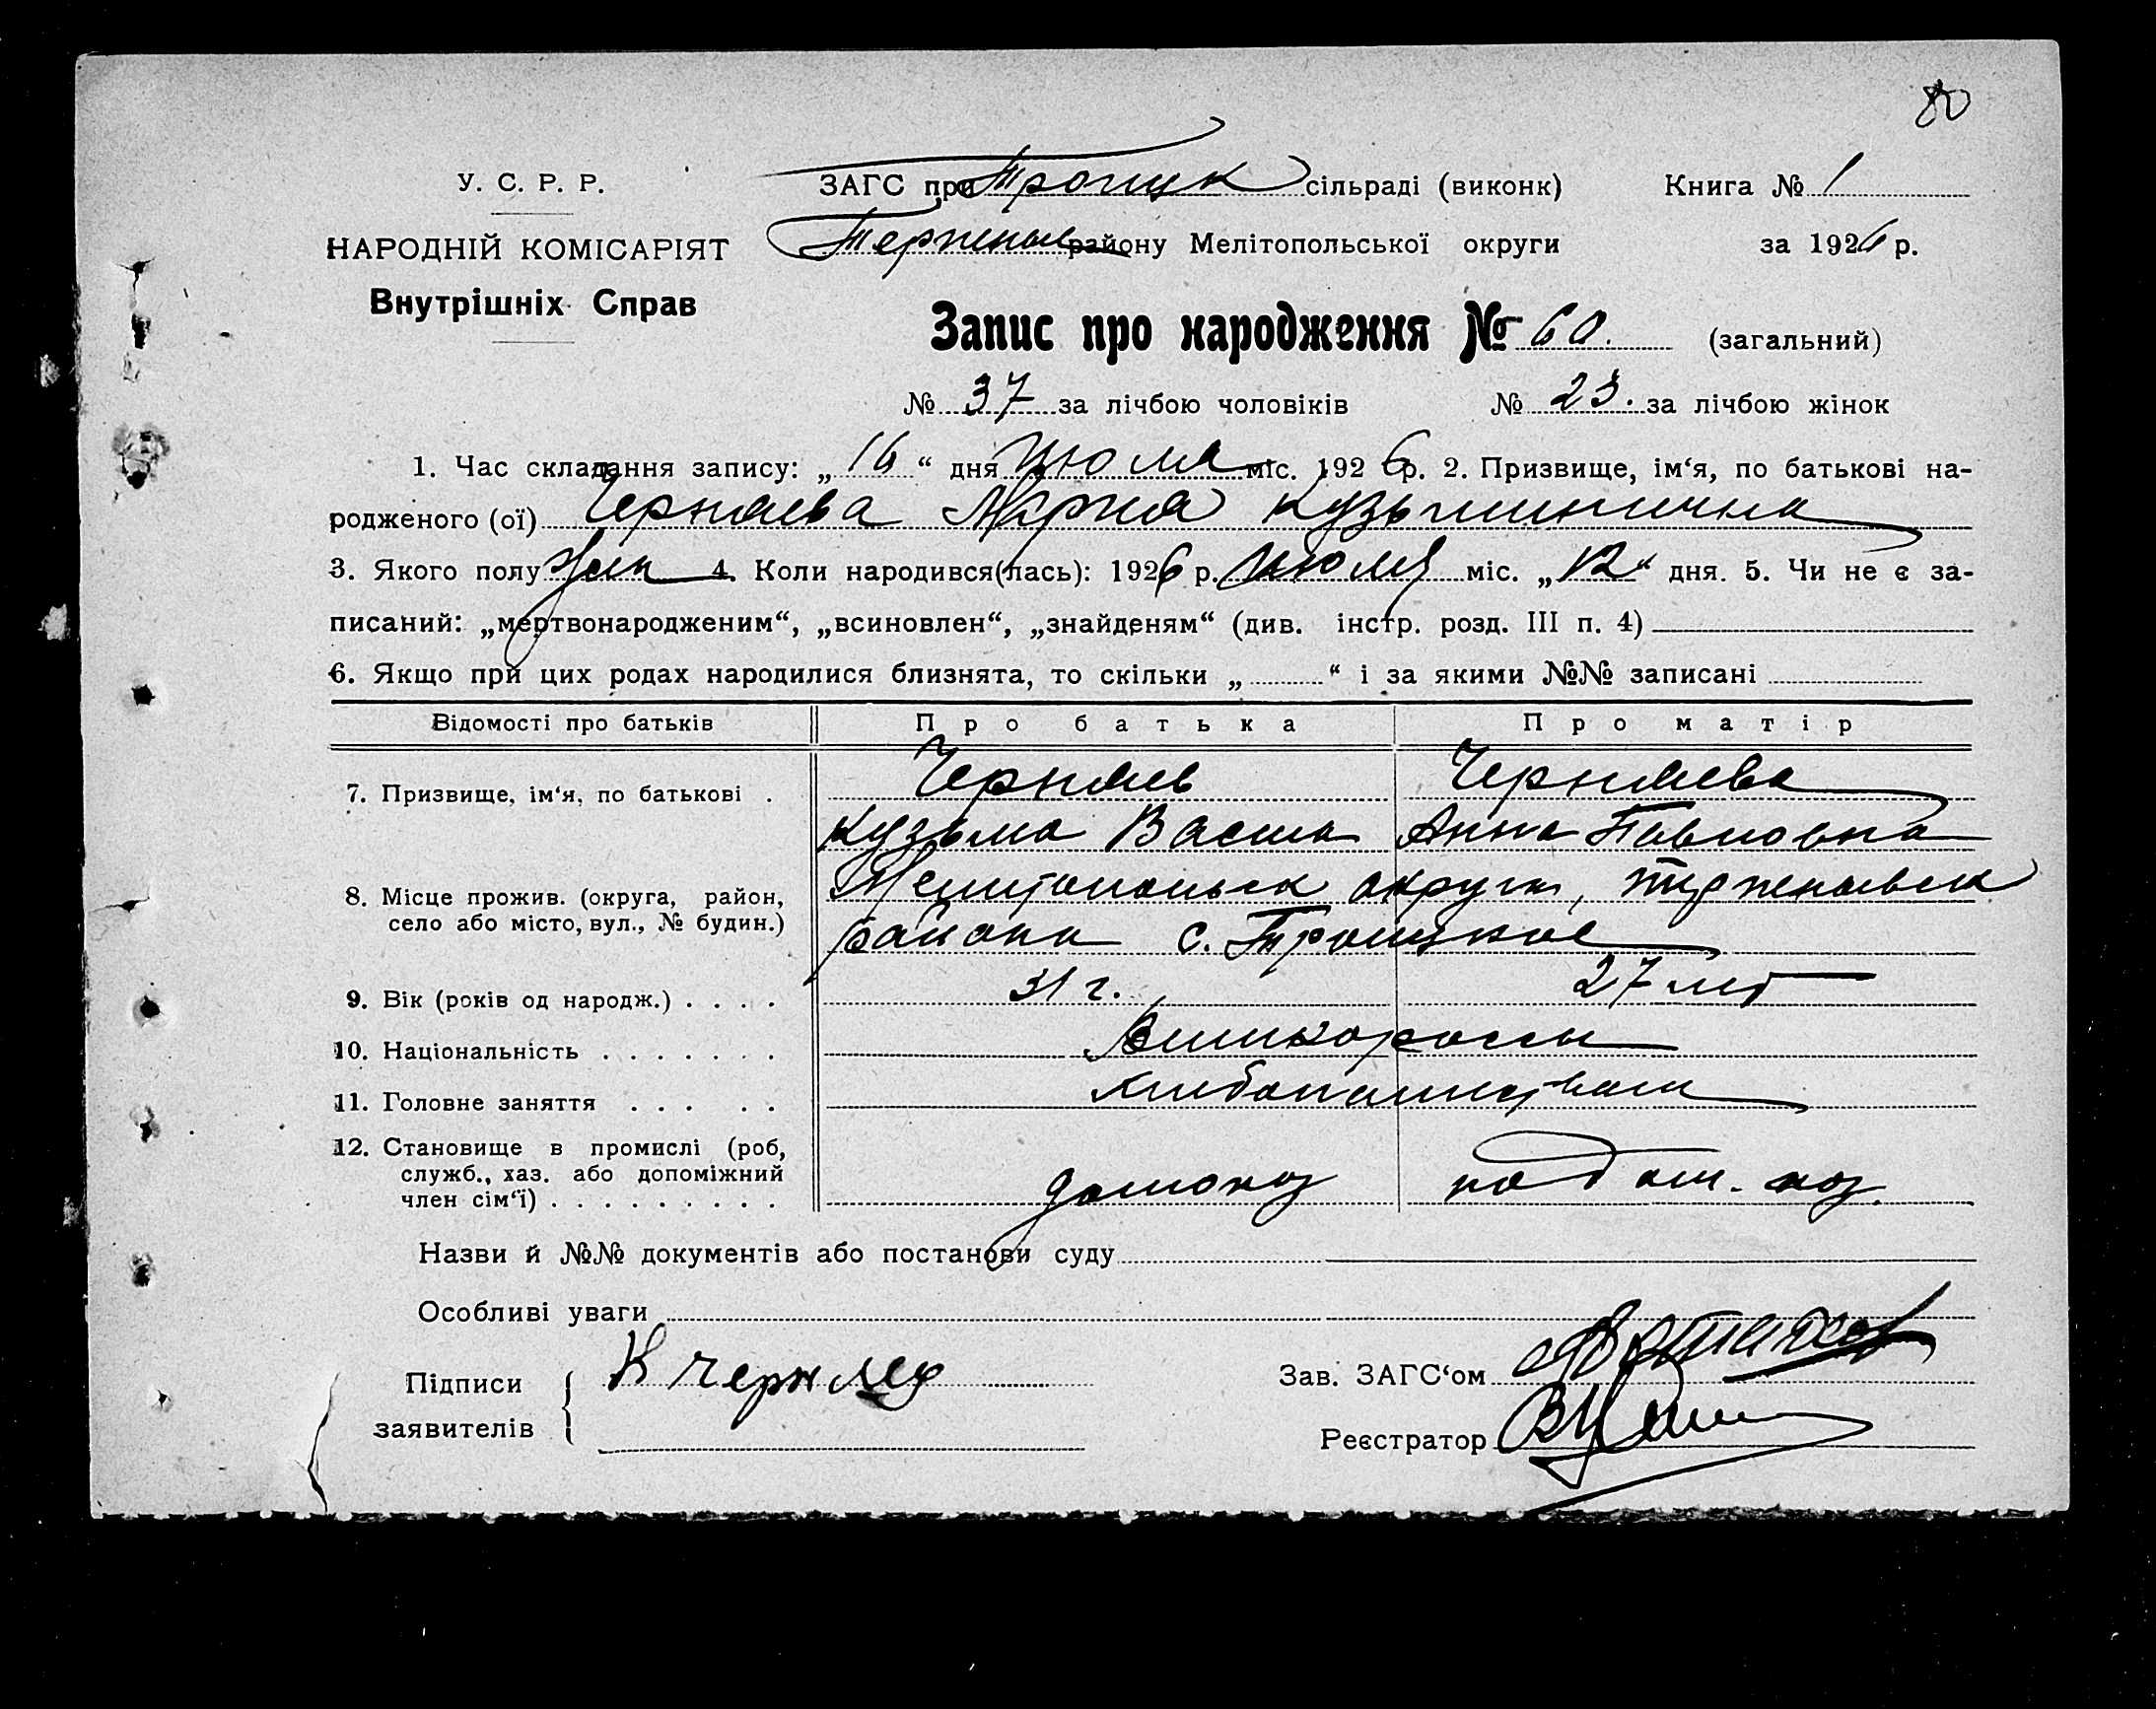 80
У. С. Р. Р.
НАРОДНІЙ КОМІСАРІЯТ
Внутрішніх Справ
ЗАГС при Троицк сільраді (виконк) Книга № 1
Терпеньев району Мелітопольської округи за 1926 р.
Запис про народження № 60. (загальний)
№ 37 за лічбою чоловіків № 23. за лічбою жінок
1. Час складання запису: „16“ дня Июля міс. 1926 р. 2. Призвище, ім‘я, по батькові на-
родженого (ої) Черняева Мария Кузьминична
3. Якого полу жен 4. Коли народився(лась): 1926 р. Июля міс. „12“ дня. 5. Чи не є за-
писаний: „мертвонародженим“, „всиновлен“, „знайденям“ (див. інстр. розд. III п. 4)
6. Якщо при цих родах народилися близнята, то скільки „ “ і за якими №№ записані
Відомості про батьків Про батька Про матір
7. Призвище, ім‘я, по батькові . Черняев Черняева
Кузьма Васил Анна Павловна
8. Місце прожив. (округа, район, село або місто, вул., № будин.) Мелитопольск округи, Терпеньевск
района с. Троицкое
9. Вік (років од народж.) . . . . 31 г. 27 лет
10. Національність . . . . . . . Великороссы
11. Головне заняття . . . . . Хлебопашеством
12. Становище в промислі (роб, служб., хаз. або допоміжний член сім‘ї) . . . . . . . . . домохоз
Назви й №№ документів або постанови суду
Особливі уваги
Підписи заявителів К Черняев
Зав. ЗАГС‘ом
Реєстратор